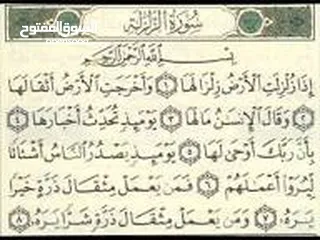 سُورَةُ الزَّلْزَلَةِ
السوق المفتوح
بِسْمِ اللَّهِ الرَّحْمَٰنِ الرَّحِيمِ
إِذَا زُلْزِلَتِ الْأَرْضُ زِلْزَالَهَا ١ وَأَخْرَجَتِ الْأَرْضُ أَثْقَالَهَا
٢ وَقَالَ الْإِنسَٰنُ مَالَهَا ٣ يَوْمَئِذٍ تُحَدِّثُ أَخْبَارَهَا ٤
بِأَنَّ رَبَّكَ أَوْحَىٰ لَهَا ٥ يَوْمَئِذٍ يَصْدُرُ النَّاسُ أَشْتَاتًا
لِّيُرَوْا أَعْمَٰلَهُمْ ٦ فَمَن يَعْمَلْ مِثْقَالَ ذَرَّةٍ خَيْرًا
يَرَهُ ٧ وَمَن يَعْمَلْ مِثْقَالَ ذَرَّةٍ شَرًّا يَرَهُ ٨